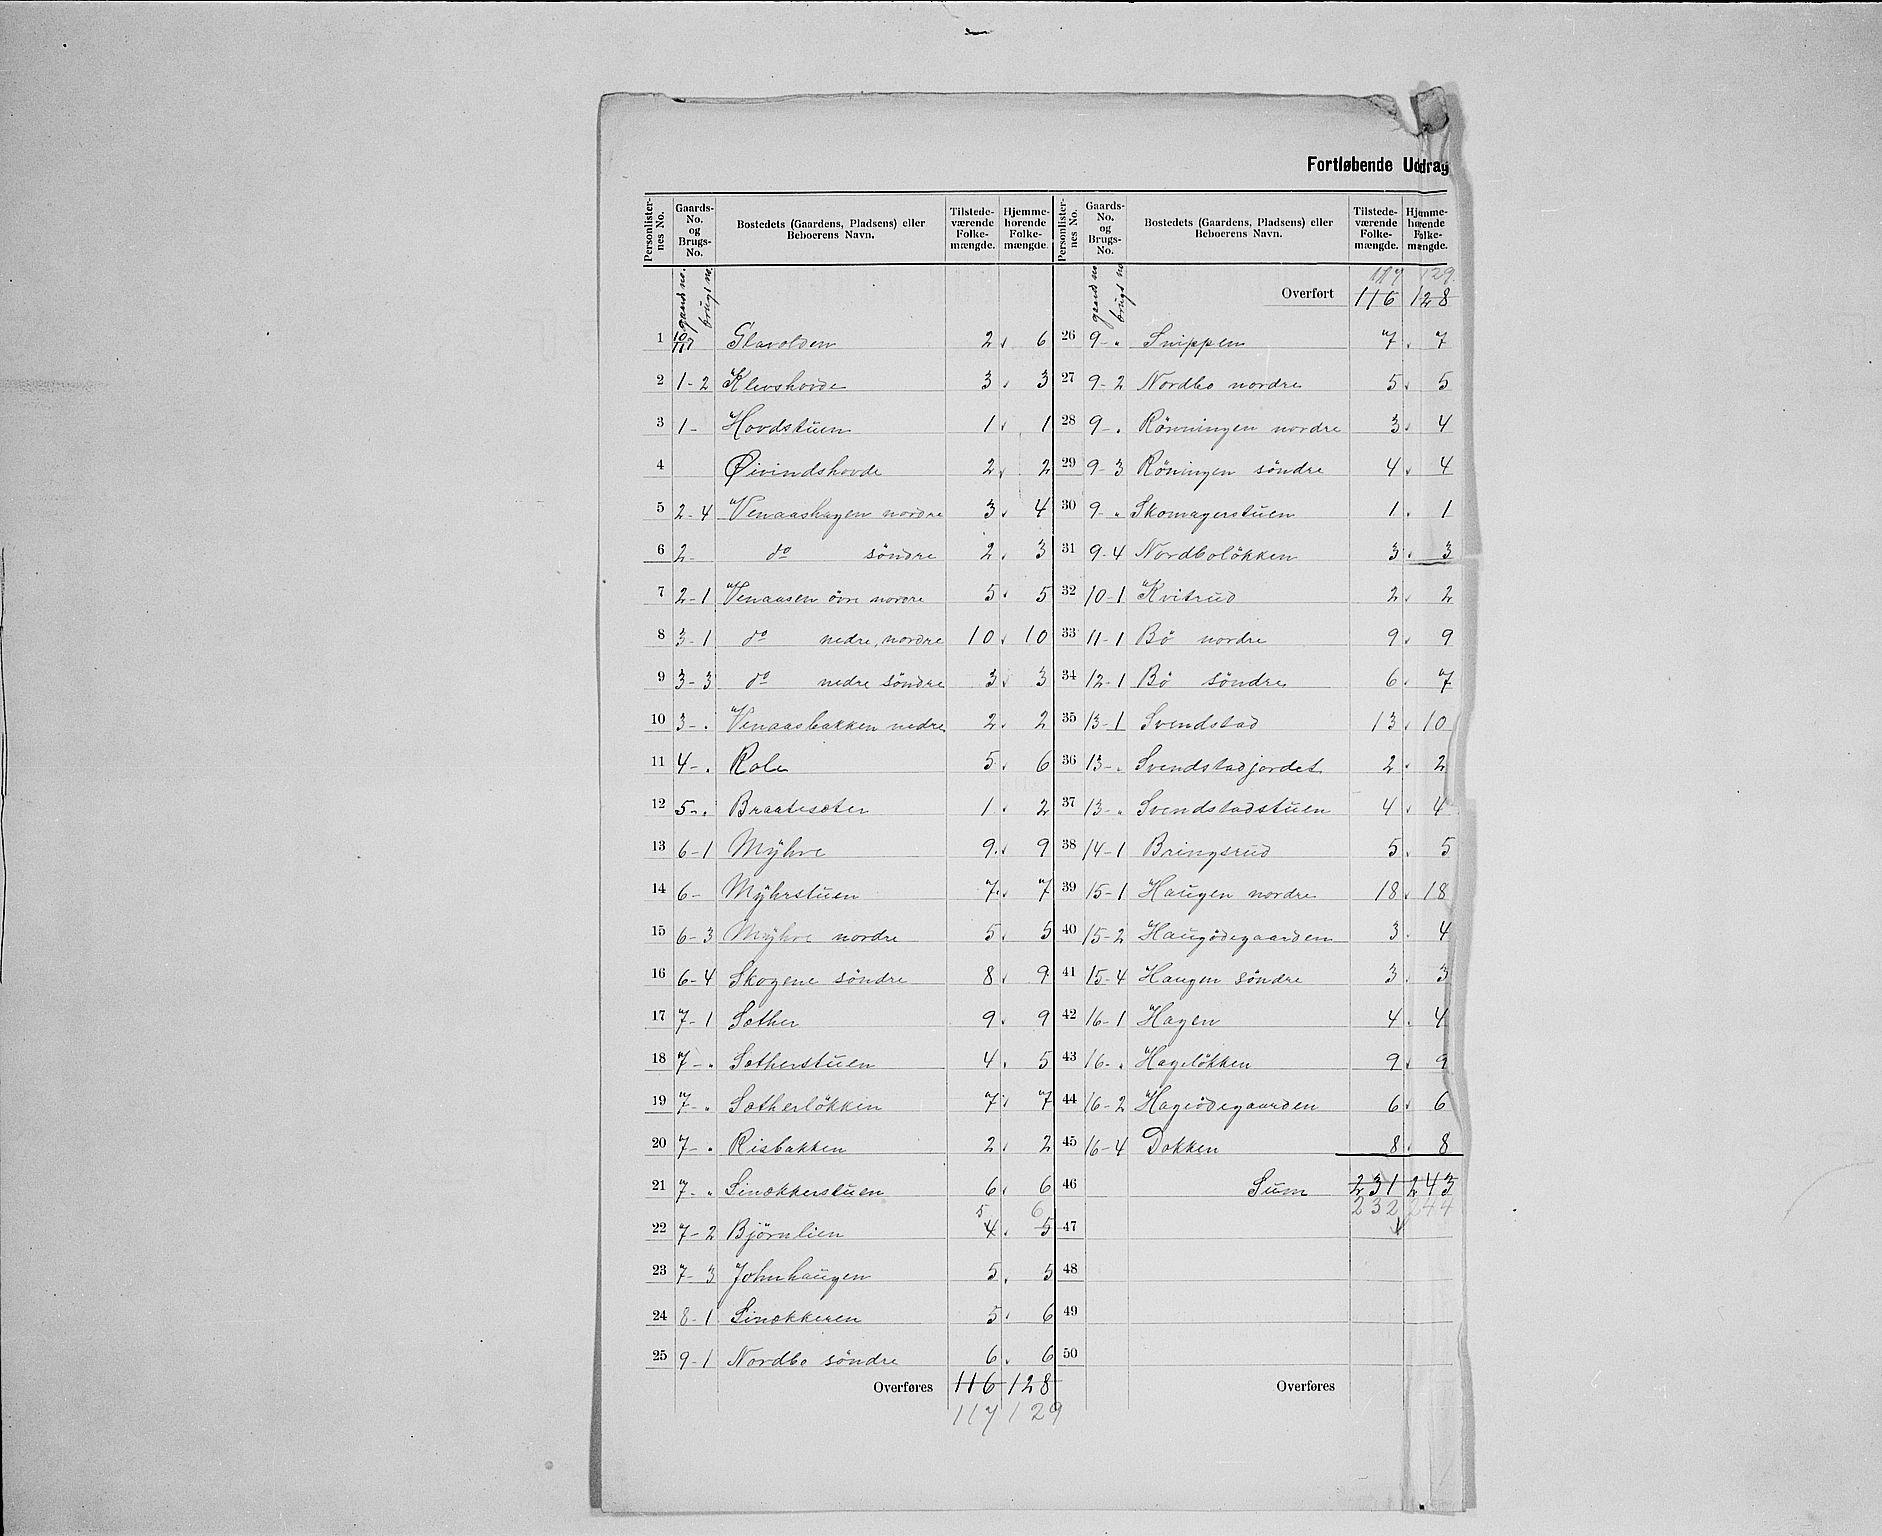 Fortløbende Uddrag
Personlister-nes No. | Gaards-No. og Brugs-No. | Bostedets (Gaardens, Pladsens) eller Beboerens Navn. | Tilstede-værende Folke-mængde. | Hjemme-hørende Folke-mængde.
gaards no. brugs no.
1 10/117 Glavolden 2 6
2 1-2 Klevshovde 3 3
3 1- Hovdstuen 1 1
4 Øivindshovde 2 2
5 2-4 Venaashagen nordre 3 4
6 2- do söndre 2 3
7 2-1 Venaasen övre nordre 5 5
8 3-1 do nedre, nordre 10 10
9 3-3 do nedre söndre 3 3
10 3-. Venaasbakken nedre 2 2
11 4-. Role 5 6
12 5-. Braatesæter 1 2
13 6-1 Myhre 9 9
14 6- Myhrstuen 7 7
15 6-3 Myhre nordre 5 5
16 6-4 Skogene söndre 8 9
17 7-1 Sæther 9 9
18 7-" Sætherstuen 4 5
19 7-" Sætherløkken 7 7
20 7-" Risbakken 2 2
21 7-" Sinækkerstuen 6 6
5 6
22 7-2 Björnlien 4 5
23 7-3 Johnhaugen 5 5
24 8-1 Sinækkeren 5 6
25 9-1 Nordbo söndre 6 6
Overføres 116 128
117 129
Personlister-nes No. | Gaards-No. og Brugs-No. | Bostedets (Gaardens, Pladsens) eller Beboerens Navn. | Tilstede-værende Folke-mængde. | Hjemme-hørende Folke-mængde.
gaards no. brugs no.
117 129
Overført 116 128
26 9-" Snippen 7 7
27 9-2 Nordbo nordre 5 5
28 9-. Rönningen nordre 3 4
29 9-3 Röningen söndre 4 4
30 9-" Skomagerstuen 1 1
31 9-4 Nordbolökken 3 3
32 10-1 Kvitrud 2 2
33 11-1 Bö nordre 9 9
34 12-1 Bö söndre 6 7
35 13-1 Svendstad 13 10
36 13-. Svendstadjordet 2 2
37 13-" Svendstadstuen 4 4
38 14-1 Bringsrud 5 5
39 15-1 Haugen nordre 18 18
40 15-2 Haugödegaarden 3 4
41 15-4 Haugen söndre 3 3
42 16-1 Hagen 4 4
43 16-. Hagelökken 9 9
44 16-2 Hageödegaarden 6 6
45 16-4 Dokken 8 8
46 Sum 231 243
232 244
47
48
49
50
Overføres